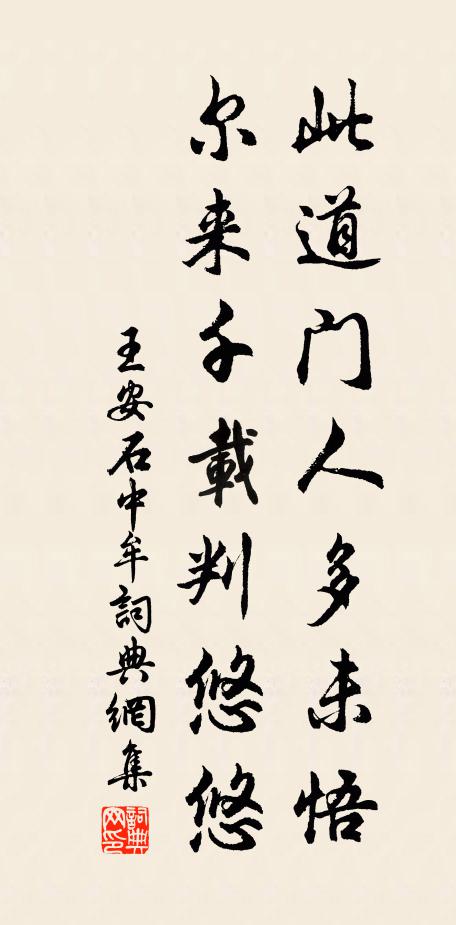 此道门人多未悟
尔来千載判悠悠
王安石中牟詞典網集
詞典
网印